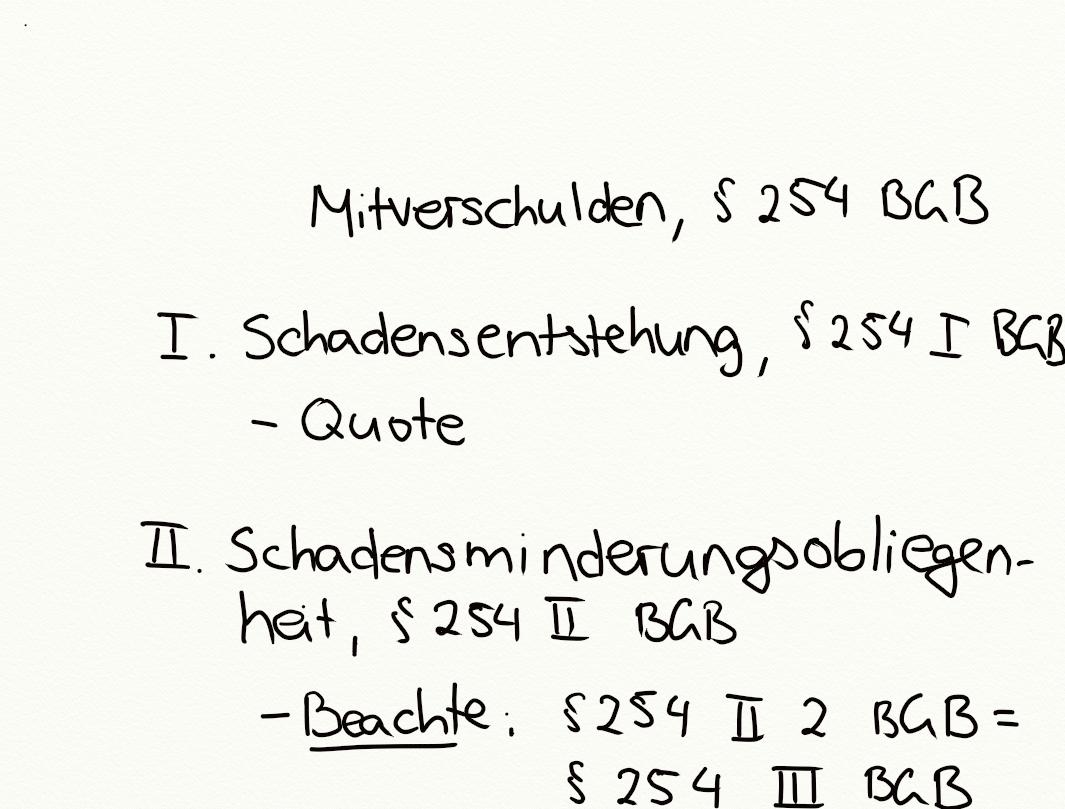 Mitverschulden, § 254 BGB
I. Schadensentstehung, § 254 I BGB
- Quote
II. Schadensminderungsobliegen-
heit, § 254 II BGB
- Beachte: § 254 II 2 BGB =
§ 254 III BGB